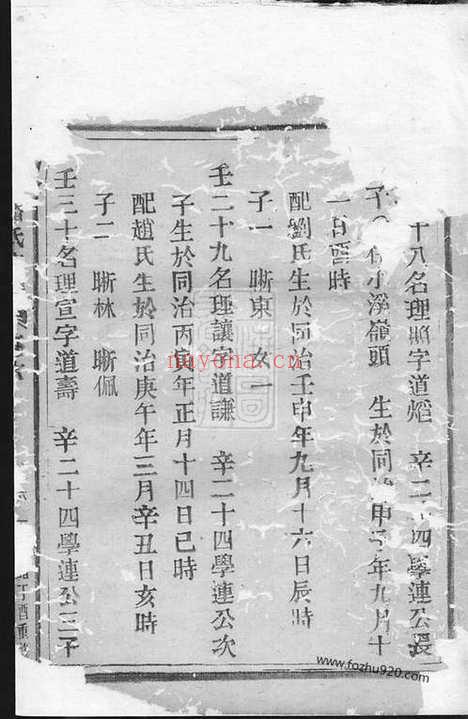 十八名理照字道熖 辛二十四學連公長
子 小淨嶺頭 生於同治甲子年九月十
一日酉時
配劉氏生於同治壬申年九月十六日辰時
子一 晰東 女一
壬二十九名理讓字道謙 辛二十四學連公次
子生於同治丙寅年正月十四日巳時
配趙氏生於同治庚午年三月辛丑日亥時
子二 晰林 晰佩
壬三十名理宣字道壽 辛二十四學連公三子
氏
丁酉重
nayona.cn
www.fozhu920.com